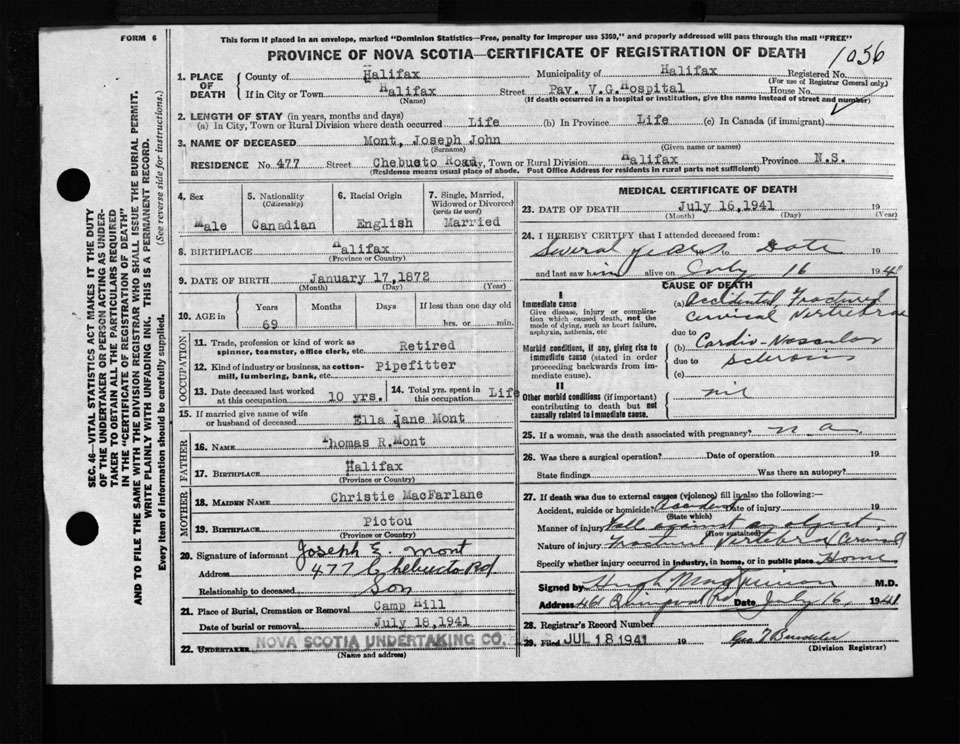 FORM 6
This form if placed in an envelope, marked "Dominion Statistics—Free, penalty for improper use $300," and properly addressed will pass through the mail "FREE"
PROVINCE OF NOVA SCOTIA—CERTIFICATE OF REGISTRATION OF DEATH
1056
SEC. 46—VITAL STATISTICS ACT MAKES IT THE DUTY
OF THE UNDERTAKER OR PERSON ACTING AS UNDER-
TAKER TO OBTAIN ALL THE PARTICULARS REQUIRED
IN THE "CERTIFICATE OF REGISTRATION OF DEATH"
AND TO FILE THE SAME WITH THE DIVISION REGISTRAR WHO SHALL ISSUE THE BURIAL PERMIT.
WRITE PLAINLY WITH UNFADING INK. THIS IS A PERMANENT RECORD.
Every item of information should be carefully supplied. (See reverse side for instructions.)
1. PLACE OF DEATH
County of Halifax Municipality of Halifax Registered No.
(For use of Registrar General only)
If in City or Town Halifax Street Pav. V.G. Hospital House No.
(Name) (If death occurred in a hospital or institution, give the name instead of street and number)
2. LENGTH OF STAY (in years, months and days)
(a) In City, Town or Rural Division where death occurred Life (b) In Province Life (c) In Canada (if immigrant)
3. NAME OF DECEASED Mont, Joseph John
(Surname) (Given name or names)
RESIDENCE No. 477 Street Chebucto Road City, Town or Rural Division Halifax Province N.S.
(Residence means usual place of abode. Post Office Address for residents in rural parts not sufficient)
4. Sex Male
5. Nationality (Citizenship) Canadian
6. Racial Origin English
7. Single, Married, Widowed or Divorced (write the word) Married
8. BIRTHPLACE Halifax
(Province or Country)
9. DATE OF BIRTH January 17,1872
(Month) (Day) (Year)
10. AGE Years 69 Months Days If less than one day old hrs. or min.
OCCUPATION
11. Trade, profession or kind of work as spinner, teamster, office clerk, etc. Retired
12. Kind of industry or business, as cotton-mill, lumbering, bank, etc. Pipefitter
13. Date deceased last worked at this occupation 10 yrs.
14. Total yrs. spent in this occupation Life
15. If married give name of wife or husband of deceased Ella Jane Mont
FATHER
16. NAME Thomas R. Mont
17. BIRTHPLACE Halifax
(Province or Country)
MOTHER
18. MAIDEN NAME Christie MacFarlane
19. BIRTHPLACE Pictou
(Province or Country)
20. Signature of informant Joseph E. Mont
Address 477 Chebucto Rd.
Relationship to deceased Son
21. Place of Burial, Cremation or Removal Camp Hill
Date of burial or removal July 18,1941
22. UNDERTAKER NOVA SCOTIA UNDERTAKING CO.
(Name and address)
MEDICAL CERTIFICATE OF DEATH
23. DATE OF DEATH July 16,1941 19
(Month) (Day) (Year)
24. I HEREBY CERTIFY that I attended deceased from:
Several years to Date 19
and last saw him alive on July 16 1941
CAUSE OF DEATH
I
Immediate cause
Give disease, injury or complication which caused death, not the mode of dying, such as heart failure, asphyxia, asthenia, etc
(a) Accidental Fractured Cervical Vertebrae
due to
Morbid conditions, if any, giving rise to immediate cause (stated in order proceeding backwards from immediate cause).
(b) Cardio-Vascular
due to Sclerosis
(c)
II
Other morbid conditions (if important) contributing to death but not causally related to immediate cause.
nil
25. If a woman, was the death associated with pregnancy? n a
26. Was there a surgical operation? Date of operation 19
State findings Was there an autopsy?
27. If death was due to external causes (violence) fill in also the following:
Accident, suicide or homicide? Accident Date of injury 19
(State which)
Manner of injury Fall against an object
(How sustained)
Nature of injury Fracture Vertebrae (Cervical)
Specify whether injury occurred in industry, in home, or in public place Home
Signed by Hugh M.D.
Address 461 Date July 16, 1941
28. Registrar's Record Number
29. Filed JUL 18 1941 19
(Division Registrar)